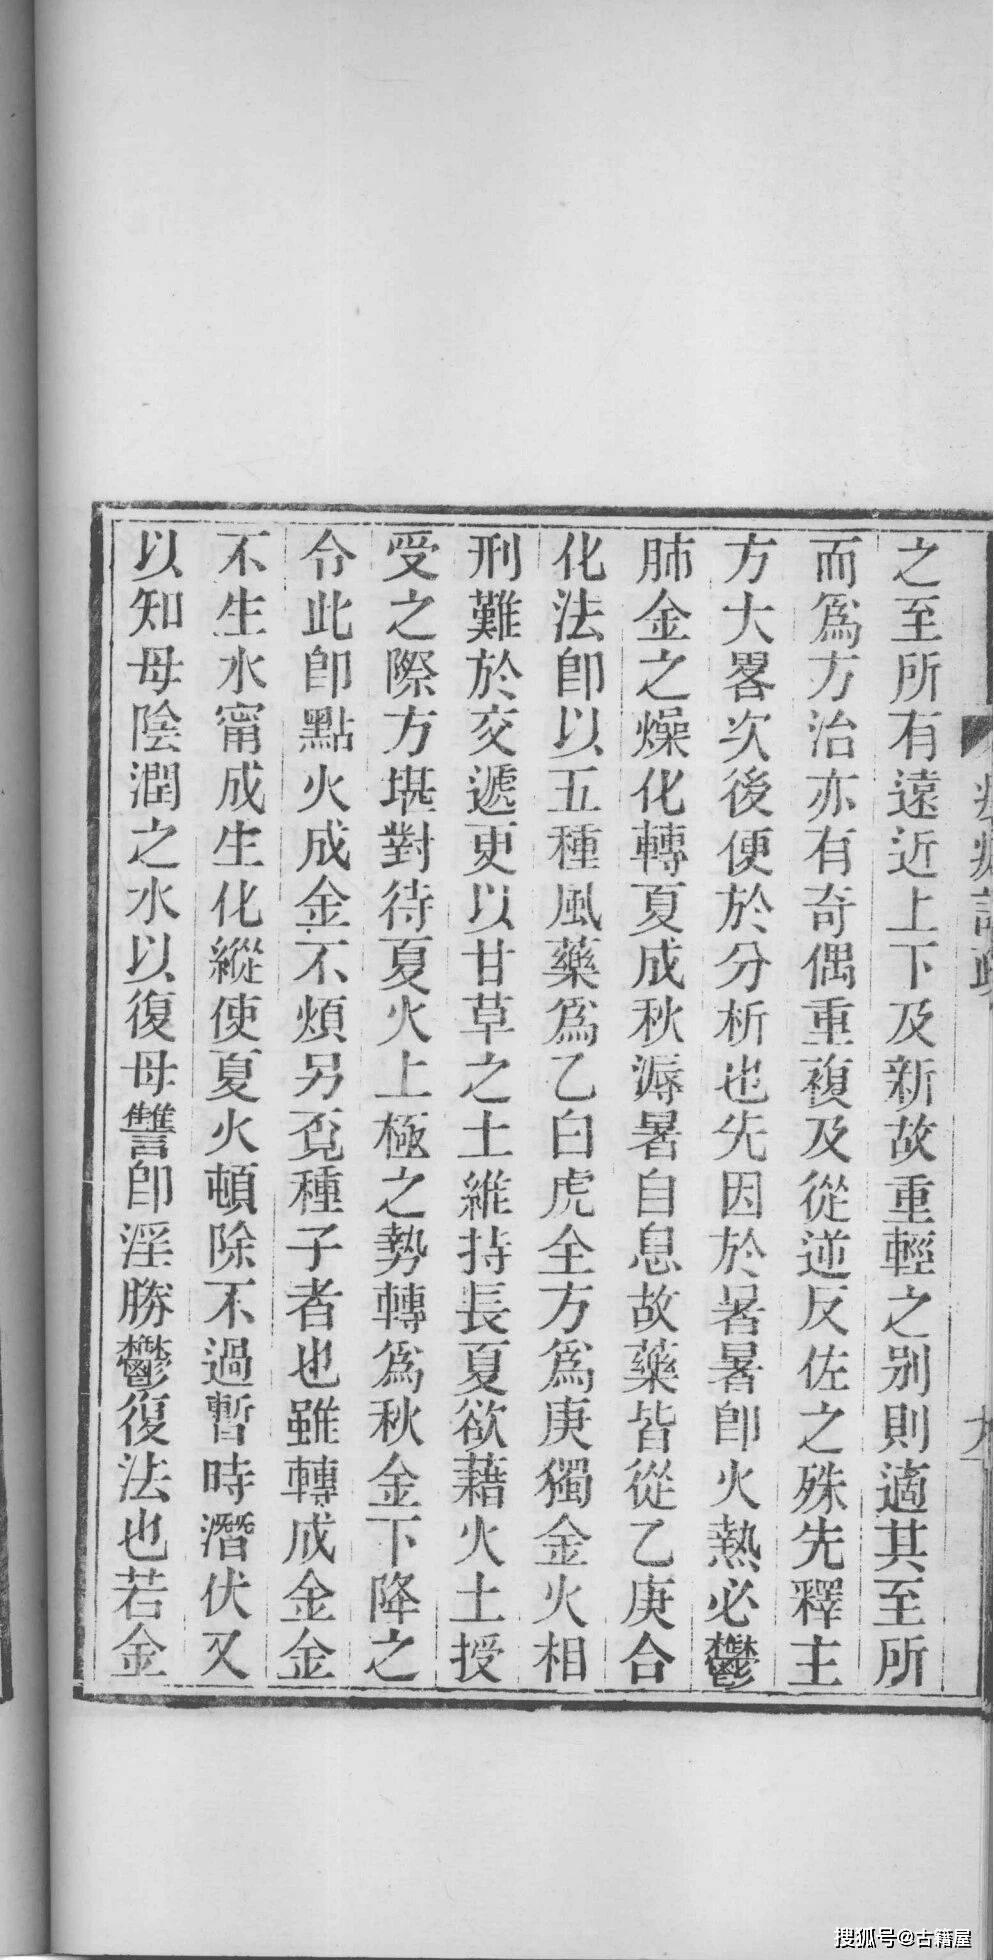 之至所有遠近上下及新故重輕之别則適其至所
而爲方治亦有奇偶重複及從逆反佐之殊先釋主
方大畧次後便於分析也先因於暑暑卽火熱必鬱
肺金之燥化轉夏成秋溽暑自息故藥皆從乙庚合
化法卽以五種風藥爲乙白虎全方爲庚獨金火相
刑難於交遞更以甘草之土維持長夏欲藉火土授
受之際方堪對待夏火上極之勢轉爲秋金下降之
令此卽點火成金不煩另覔種子者也雖轉成金金
不生水甯成生化縱使夏火頓除不過暫時潛伏又
以知母陰潤之水以復母讐卽淫勝鬱復法也若金
搜狐号@古籍屋